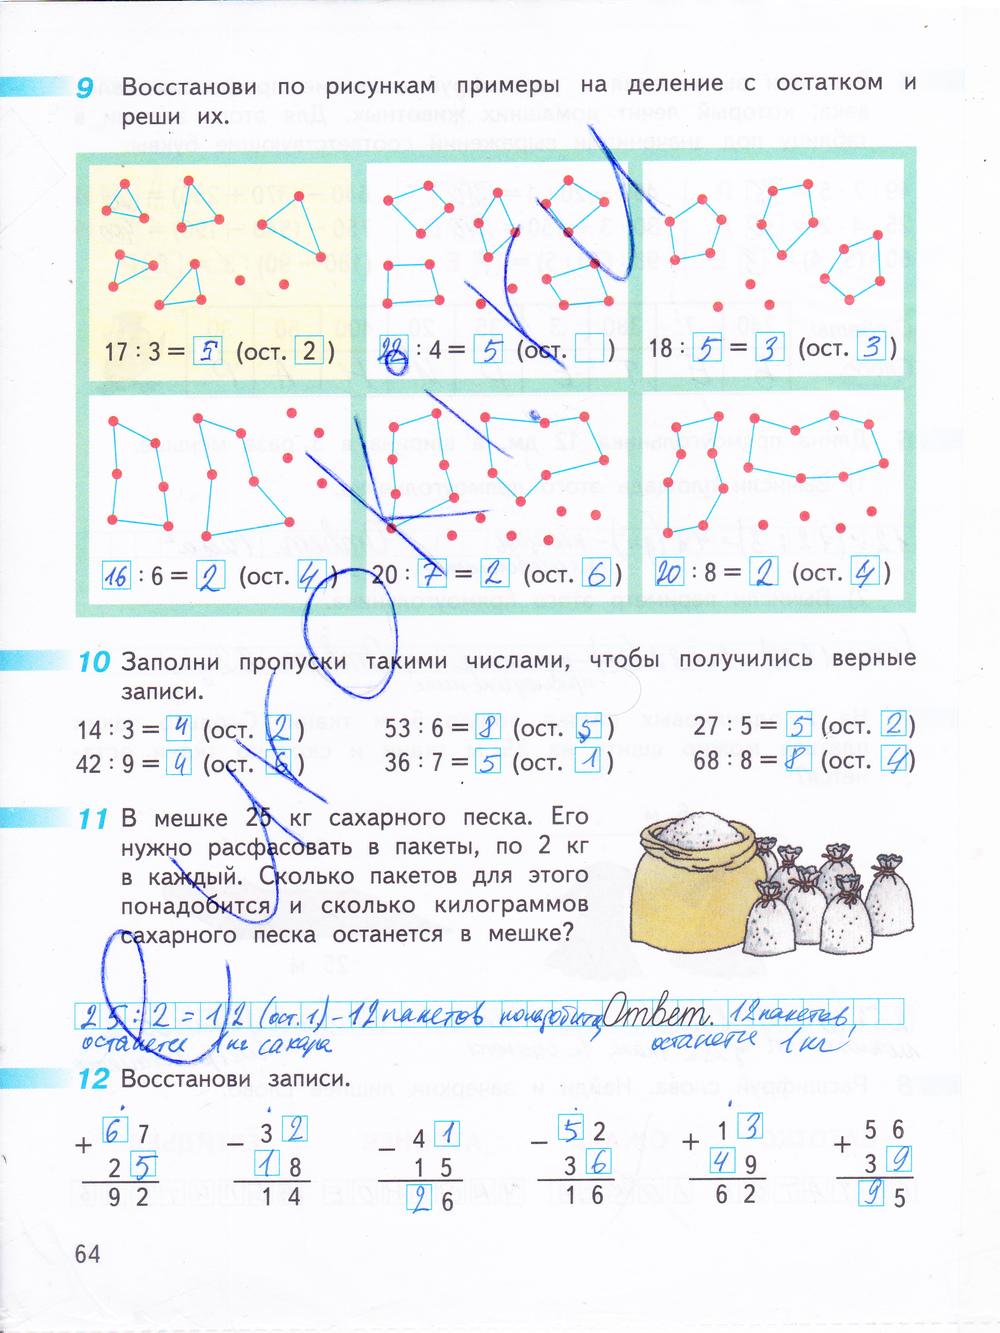 9 Восстанови по рисункам примеры на деление с остатком и
реши их.
17 : 3 = 5 (ост. 2)
22 : 4 = 5 (ост. )
18 : 5 = 3 (ост. 3)
16 : 6 = 2 (ост. 4)
20 : 7 = 2 (ост. 6)
20 : 8 = 2 (ост. 4)
10 Заполни пропуски такими числами, чтобы получились верные
записи.
14 : 3 = 4 (ост. 2) 53 : 6 = 8 (ост. 5) 27 : 5 = 5 (ост. 2)
42 : 9 = 4 (ост. 6) 36 : 7 = 5 (ост. 1) 68 : 8 = 8 (ост. 4)
11 В мешке 25 кг сахарного песка. Его
нужно расфасовать в пакеты, по 2 кг
в каждый. Сколько пакетов для этого
понадобится и сколько килограммов
сахарного песка останется в мешке?
25 : 2 = 12 (ост. 1) – 12 пакетов Ответ. 12 пакетов,
останется 1 кг сахара останется 1 кг
12 Восстанови записи.
+ 67 − 32 − 41 − 52 + 13 + 56
25 18 15 36 49 39
92 14 26 16 62 95
64